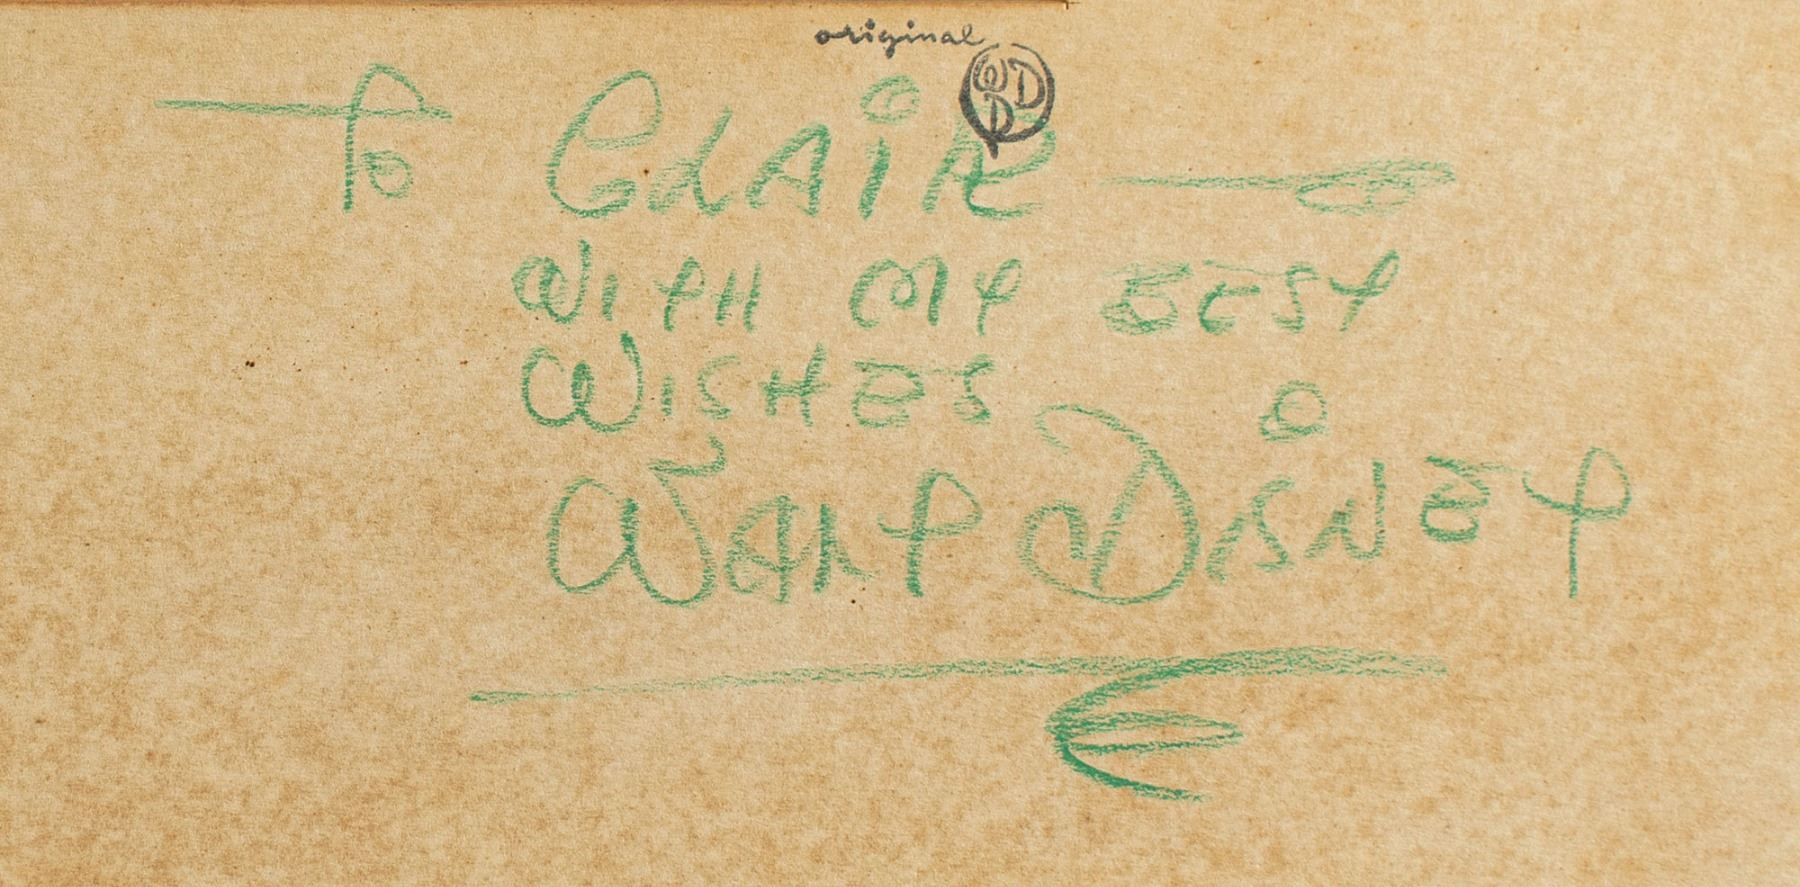 original
WDP
To Clair
With my best
wishes
Walt Disney